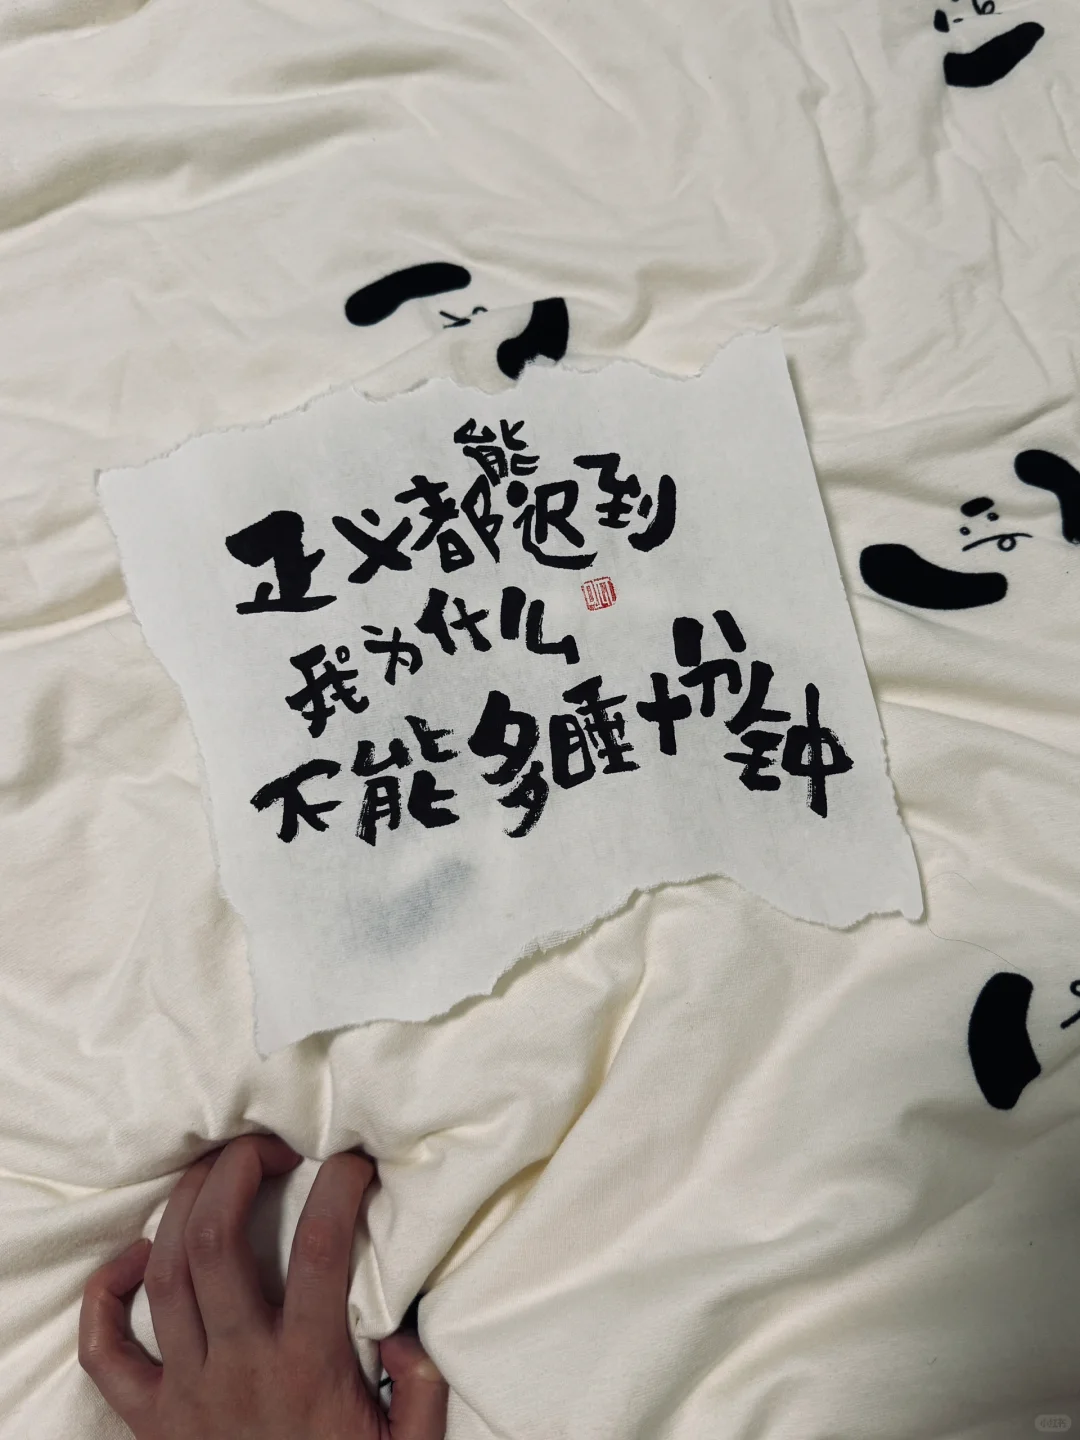 正义都能迟到
我为什么
不能多睡十分钟
小红书